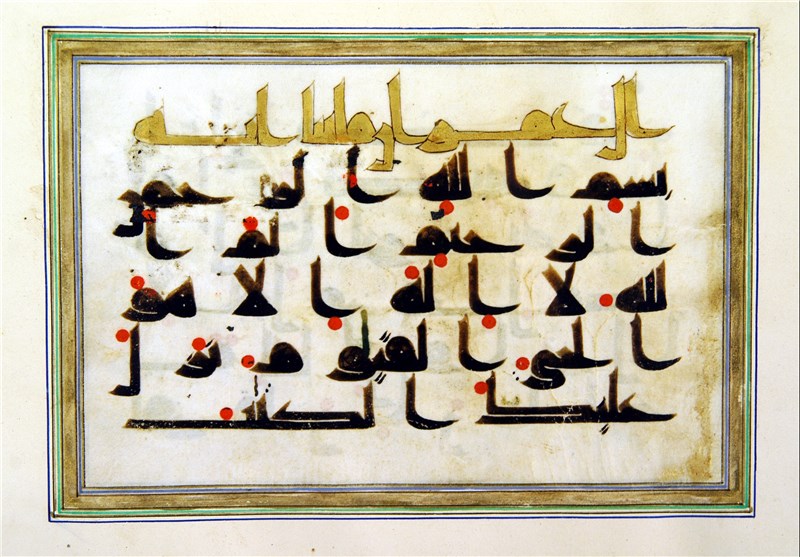 ال عمران مايتا ايه
بسم الله الرحمن
الرحيم الم ا
لله لا اله الا هو
الحي القيوم نزل
عليك الكتب